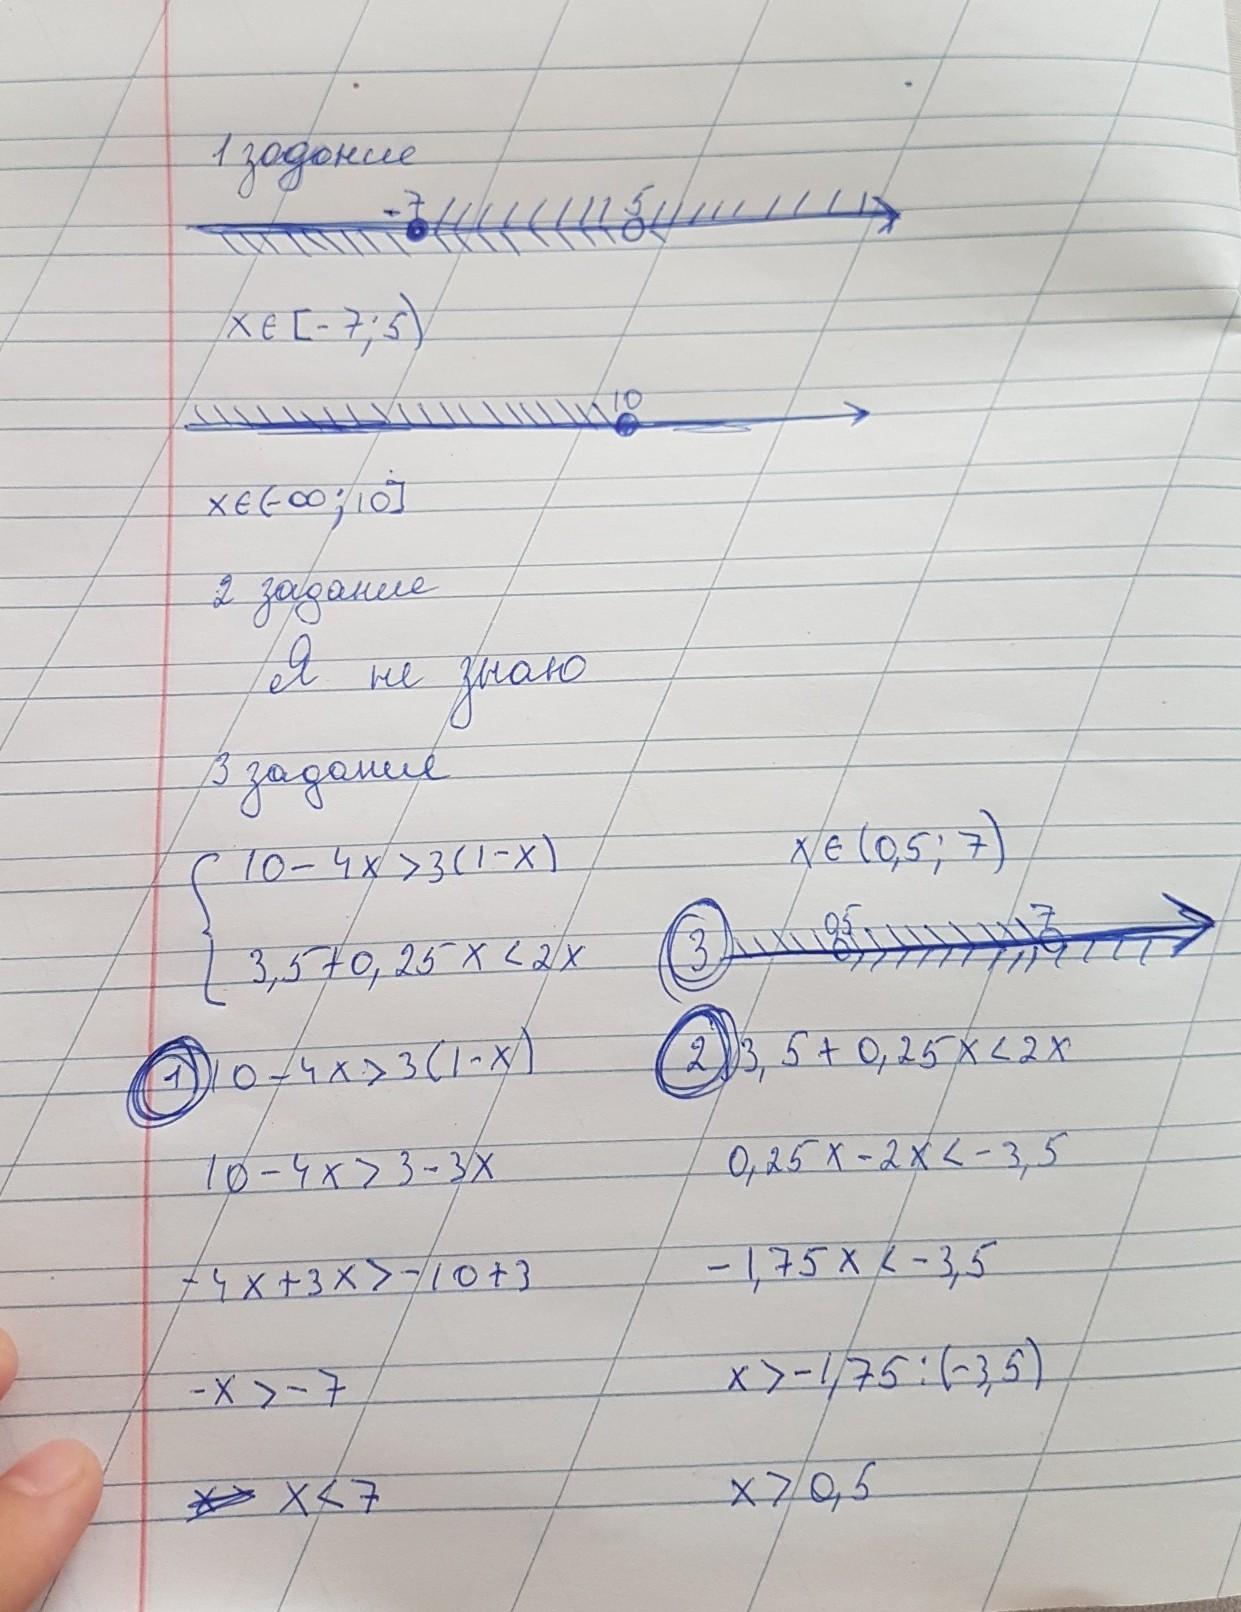 1 задание
-7 5
x∈[-7;5)
10
x∈(-∞;10]
2 задание
Я не знаю
3 задание
10-4x>3(1-x)
3,5+0,25x<2x
x∈(0,5;7)
3 0,5 7
1) 10-4x>3(1-x)
10-4x>3-3x
-4x+3x>-10+3
-x>-7
x<7
2) 3,5+0,25x<2x
0,25x-2x<-3,5
-1,75x<-3,5
x>-1,75:(-3,5)
x>0,5